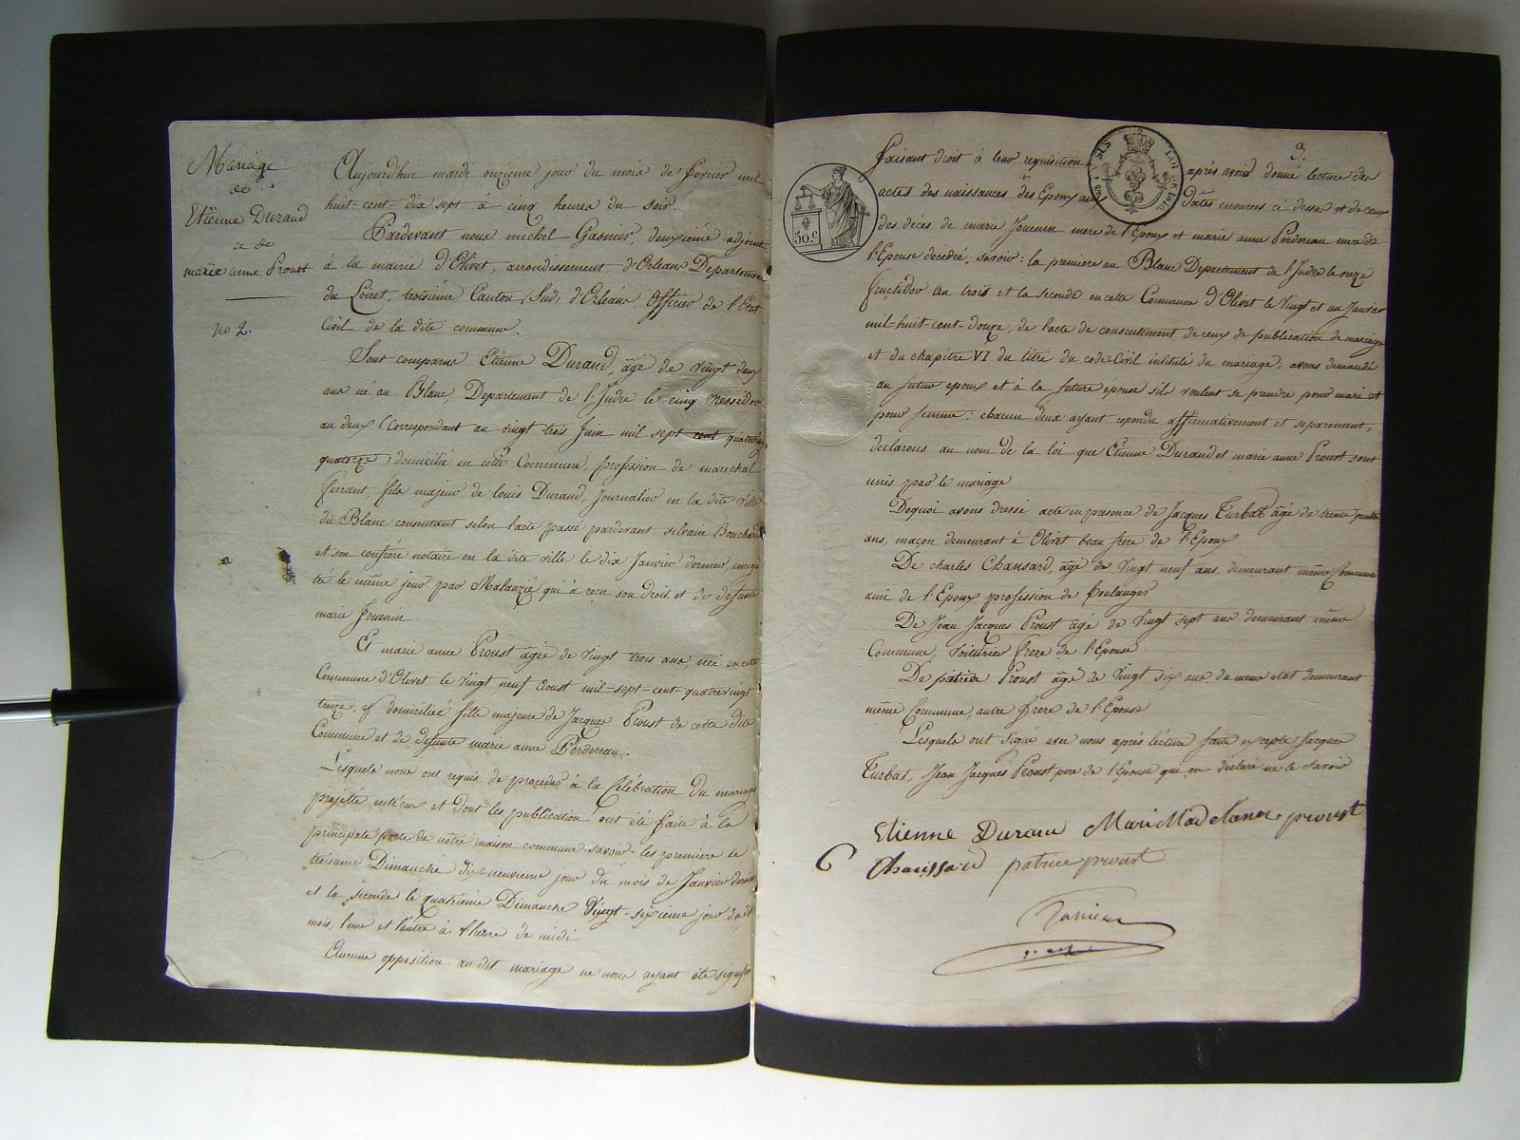 Mariage
de
Etienne Durand
et de
marie anne Proust
no 2.
Aujourdhui mardi onzieme jour du mois de fevrier mil
huit-cent-dix sept à cinq heures du soir.
Pardevant nous michel Gasnier, deuxieme adjoint
à la mairie d'Olivet, arrondissement d'Orleans Departement
du Loiret, troisieme Canton (Sud) d'Orléans Officier de l'Etat
Civil de la dite commune.
Sont comparus Etienne Durand, âgé de vingt deux
ans né au Blanc Departement de l'Indre le cinq Messidor
an deux (Correspondant au vingt trois Juin mil sept cent quatrevingt
quatorze) domicilié en cette Commune, profession de marechal
ferrant fils majeur de louis Durand, journalier en la dite ville
du Blanc consentant selon l'acte passé pardevant silvain Bouchard
et son confrère notaire en la dite ville le dix Janvier dernier enregis
tré le même jour par Malanzié qui à reçu son droit et de defunte
marie Jouenin
Et marie anne Proust âgée de vingt trois ans née en cette
Commune d'Olivet le vingt neuf aoust mil-sept-cent-quatrevingt
treize, y domiciliée fille majeure de Jacques Proust de cette dite
Commune et de defunte marie anne Perdereau.
Lesquels nous ont requis de proceder à la Célébration du mariage
projetté entr'eux et dont les publications ont été faites à la
principale porte de notre maison commune savoir les premiere le
troisieme Dimanche dix-neuvieme jour du mois de Janvier dernier
et la seconde le quatrieme Dimanche vingt-sixieme jour dudit
mois, l'une et l'autre à l'heure de midi
Aucune opposition au dit mariage ne nous ayant été signifiée
3.
faisant droit à leur requisition après avoir donné lecture des
actes des naissances des Epoux aux Dates enoncées ci dessus et de ceux
des décès de marie Jouenin mere de l'Epoux et marie anne Perdereau mere de
l'Epouse decedée, savoir: la premiere au Blanc Departement de l'Indre le onze
fructidor an trois et la seconde en cette Commune d'Olivet le vingt et un Janvier
mil-huit-cent-douze, de l'acte de consentement de ceux de publication de mariage
et du chapitre VI du titre du code Civil intitulé du mariage, avons demandé
au futur epoux et à la future epouse s'ils veulent se prendre pour mari et
pour femme: chacun deux ayant repondu affirmativement et separement,
declarons au nom de la loi que Etienne Durand et marie anne Proust sont
unis par le mariage
Dequoi avons dressé acte en presence de Jacques Turbat âgé de trente
ans, maçon demeurant à Olivet beau frere de l'Epoux
De charles Chaussard, âgé de vingt neuf ans, demeurant même Commune
ami de l'Epoux profession de boulanger
De Jean Jacques Proust âgé de vingt sept ans demeurant même
Commune, Voiturier frere de l'Epouse
De patrice Proust âgé de vingt six ans de meme etat demeurant
même Commune, autre frere de l'Epouse
Lesquels ont signé avec nous après lecture faite excepté Jacques
Turbat, Jean Jacques Proust pere de l'Epouse qui ont declaré ne le savoir
Etienne Durand Marie Madelanne proust
Chaussard patrice proust
Gasnier
50 c